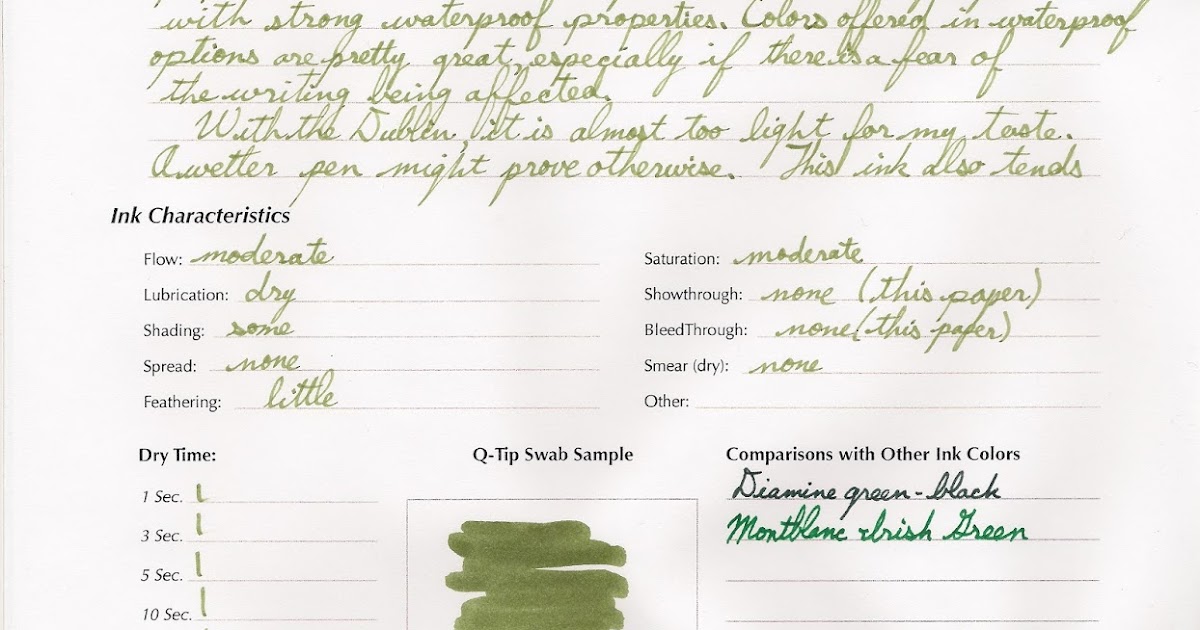 with strong waterproof properties. Colors offered in waterproof
options are pretty great, especially if there is a fear of
the writing being affected.
With the Dublin, it is almost too light for my taste.
A wetter pen might prove otherwise. This ink also tends
Ink Characteristics
Flow: moderate
Lubrication: dry
Shading: some
Spread: none
Feathering: little
Saturation: moderate
Showthrough: none (this paper)
BleedThrough: none (this paper)
Smear (dry): none
Other:
Dry Time:
1 Sec.
3 Sec.
5 Sec.
10 Sec.
Q-Tip Swab Sample
Comparisons with Other Ink Colors
Diamine green-black
Montblanc Irish Green